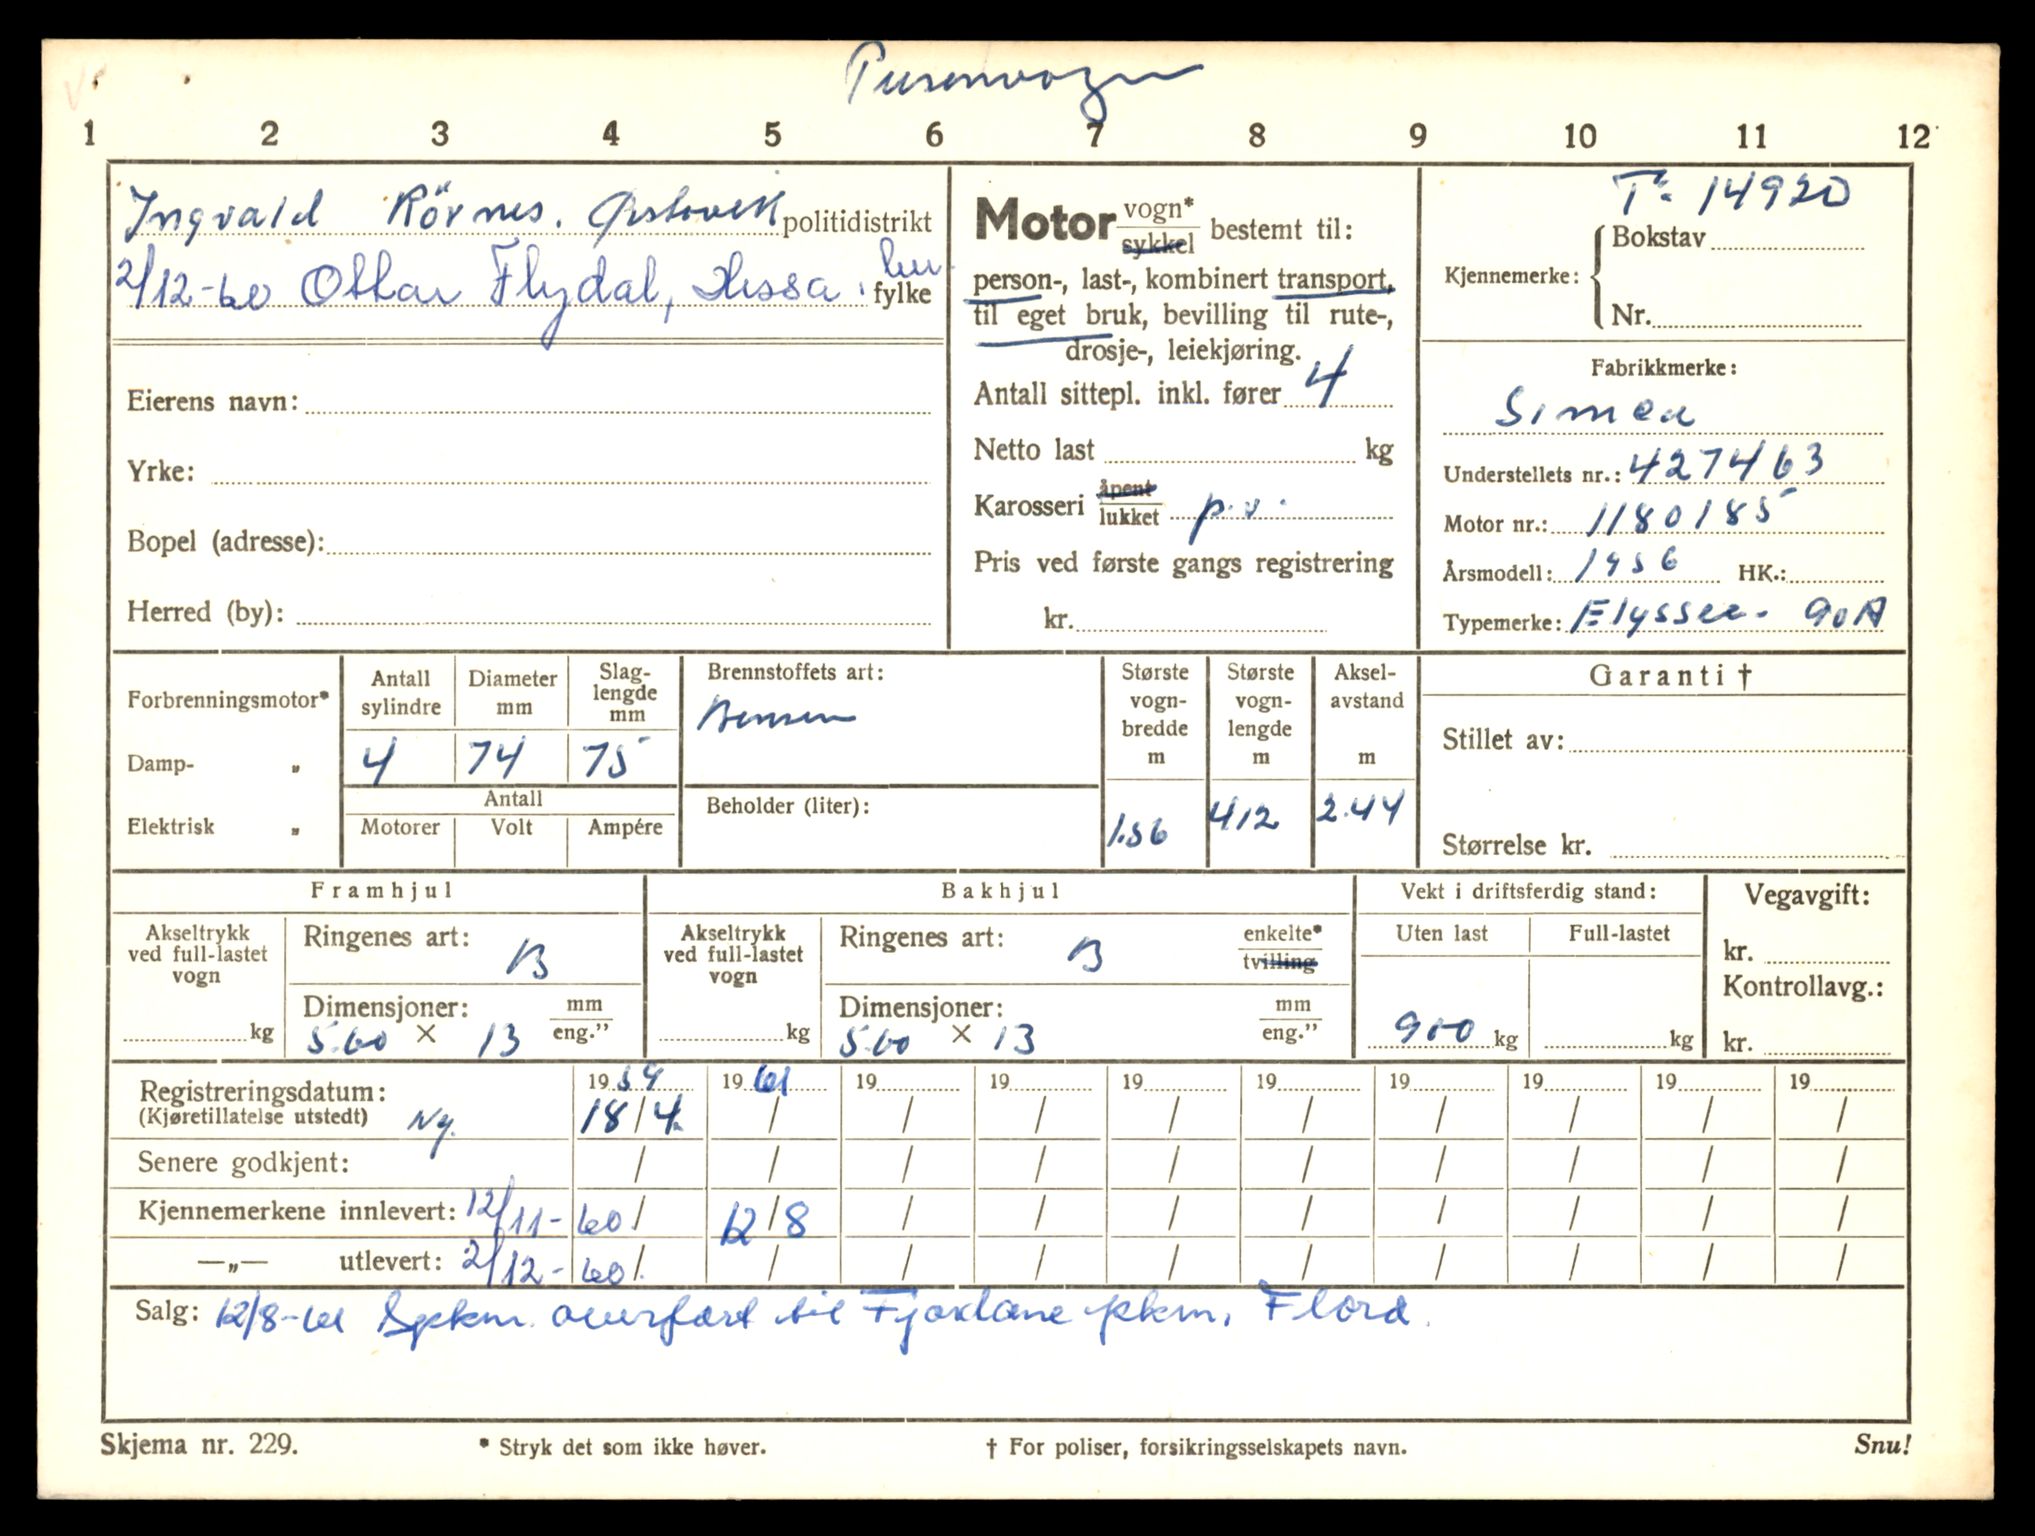 Personvogn
1 2 3 4 5 6 7 8 9 10 11 12
Ingvald Rövnes. Ørstavik politidistrikt
2/12-60 Ottar Flydal, Hessa. fylke
Eierens navn:
Yrke:
Bopel (adresse):
Herred (by):
Motor vogn* sykkel bestemt til:
person-, last-, kombinert transport,
til eget bruk, bevilling til rute-,
drosje-, leiekjøring.
Antall sittepl. inkl. fører 4
Netto last kg
Karosseri åpent lukket p.v.
Pris ved første gangs registrering
kr.
T- 14920
Kjennemerke: Bokstav
Nr.
Fabrikkmerke:
Simca
Understellets nr.: 4274163
Motor nr.: 1180185
Årsmodell: 1956 HK.:
Typemerke: Elyssee- 90A
Forbrenningsmotor*
Damp- „
Elektrisk „
Antall sylindre
Diameter mm
Slag-lengde mm
4 74 75
Antall
Motorer Volt Ampére
Brennstoffets art:
Bensin
Beholder (liter):
Største vogn-bredde m
1.56
Største vogn-lengde m
412
Aksel-avstand m
2.44
Garanti †
Stillet av:
Størrelse kr.
Framhjul
Akseltrykk
ved full-lastet
vogn
kg
Ringenes art: B
Dimensjoner: mm
5.60 × 13 eng.”
Bakhjul
Akseltrykk
ved full-lastet
vogn
kg
Ringenes art: B enkelte* tvilling
Dimensjoner: mm
5.60 × 13 eng.”
Vekt i driftsferdig stand:
Uten last Full-lastet
900 kg kg
Vegavgift:
kr.
Kontrollavg.:
kr.
Registreringsdatum: 1959 1961 19 19 19 19 19 19 19 19
(Kjøretillatelse utstedt) Ny. 18/4. / / / / / / / / /
Senere godkjent: / / / / / / / / / /
Kjennemerkene innlevert: 12/11-60 / 12/8 / / / / / / / /
—„— utlevert: 2/12-60 / / / / / / / / / /
Salg: 12/8-61 Spkm. overført til Fjordane pkm, Florø.
Skjema nr. 229.
* Stryk det som ikke høver.
† For poliser, forsikringsselskapets navn.
Snu!